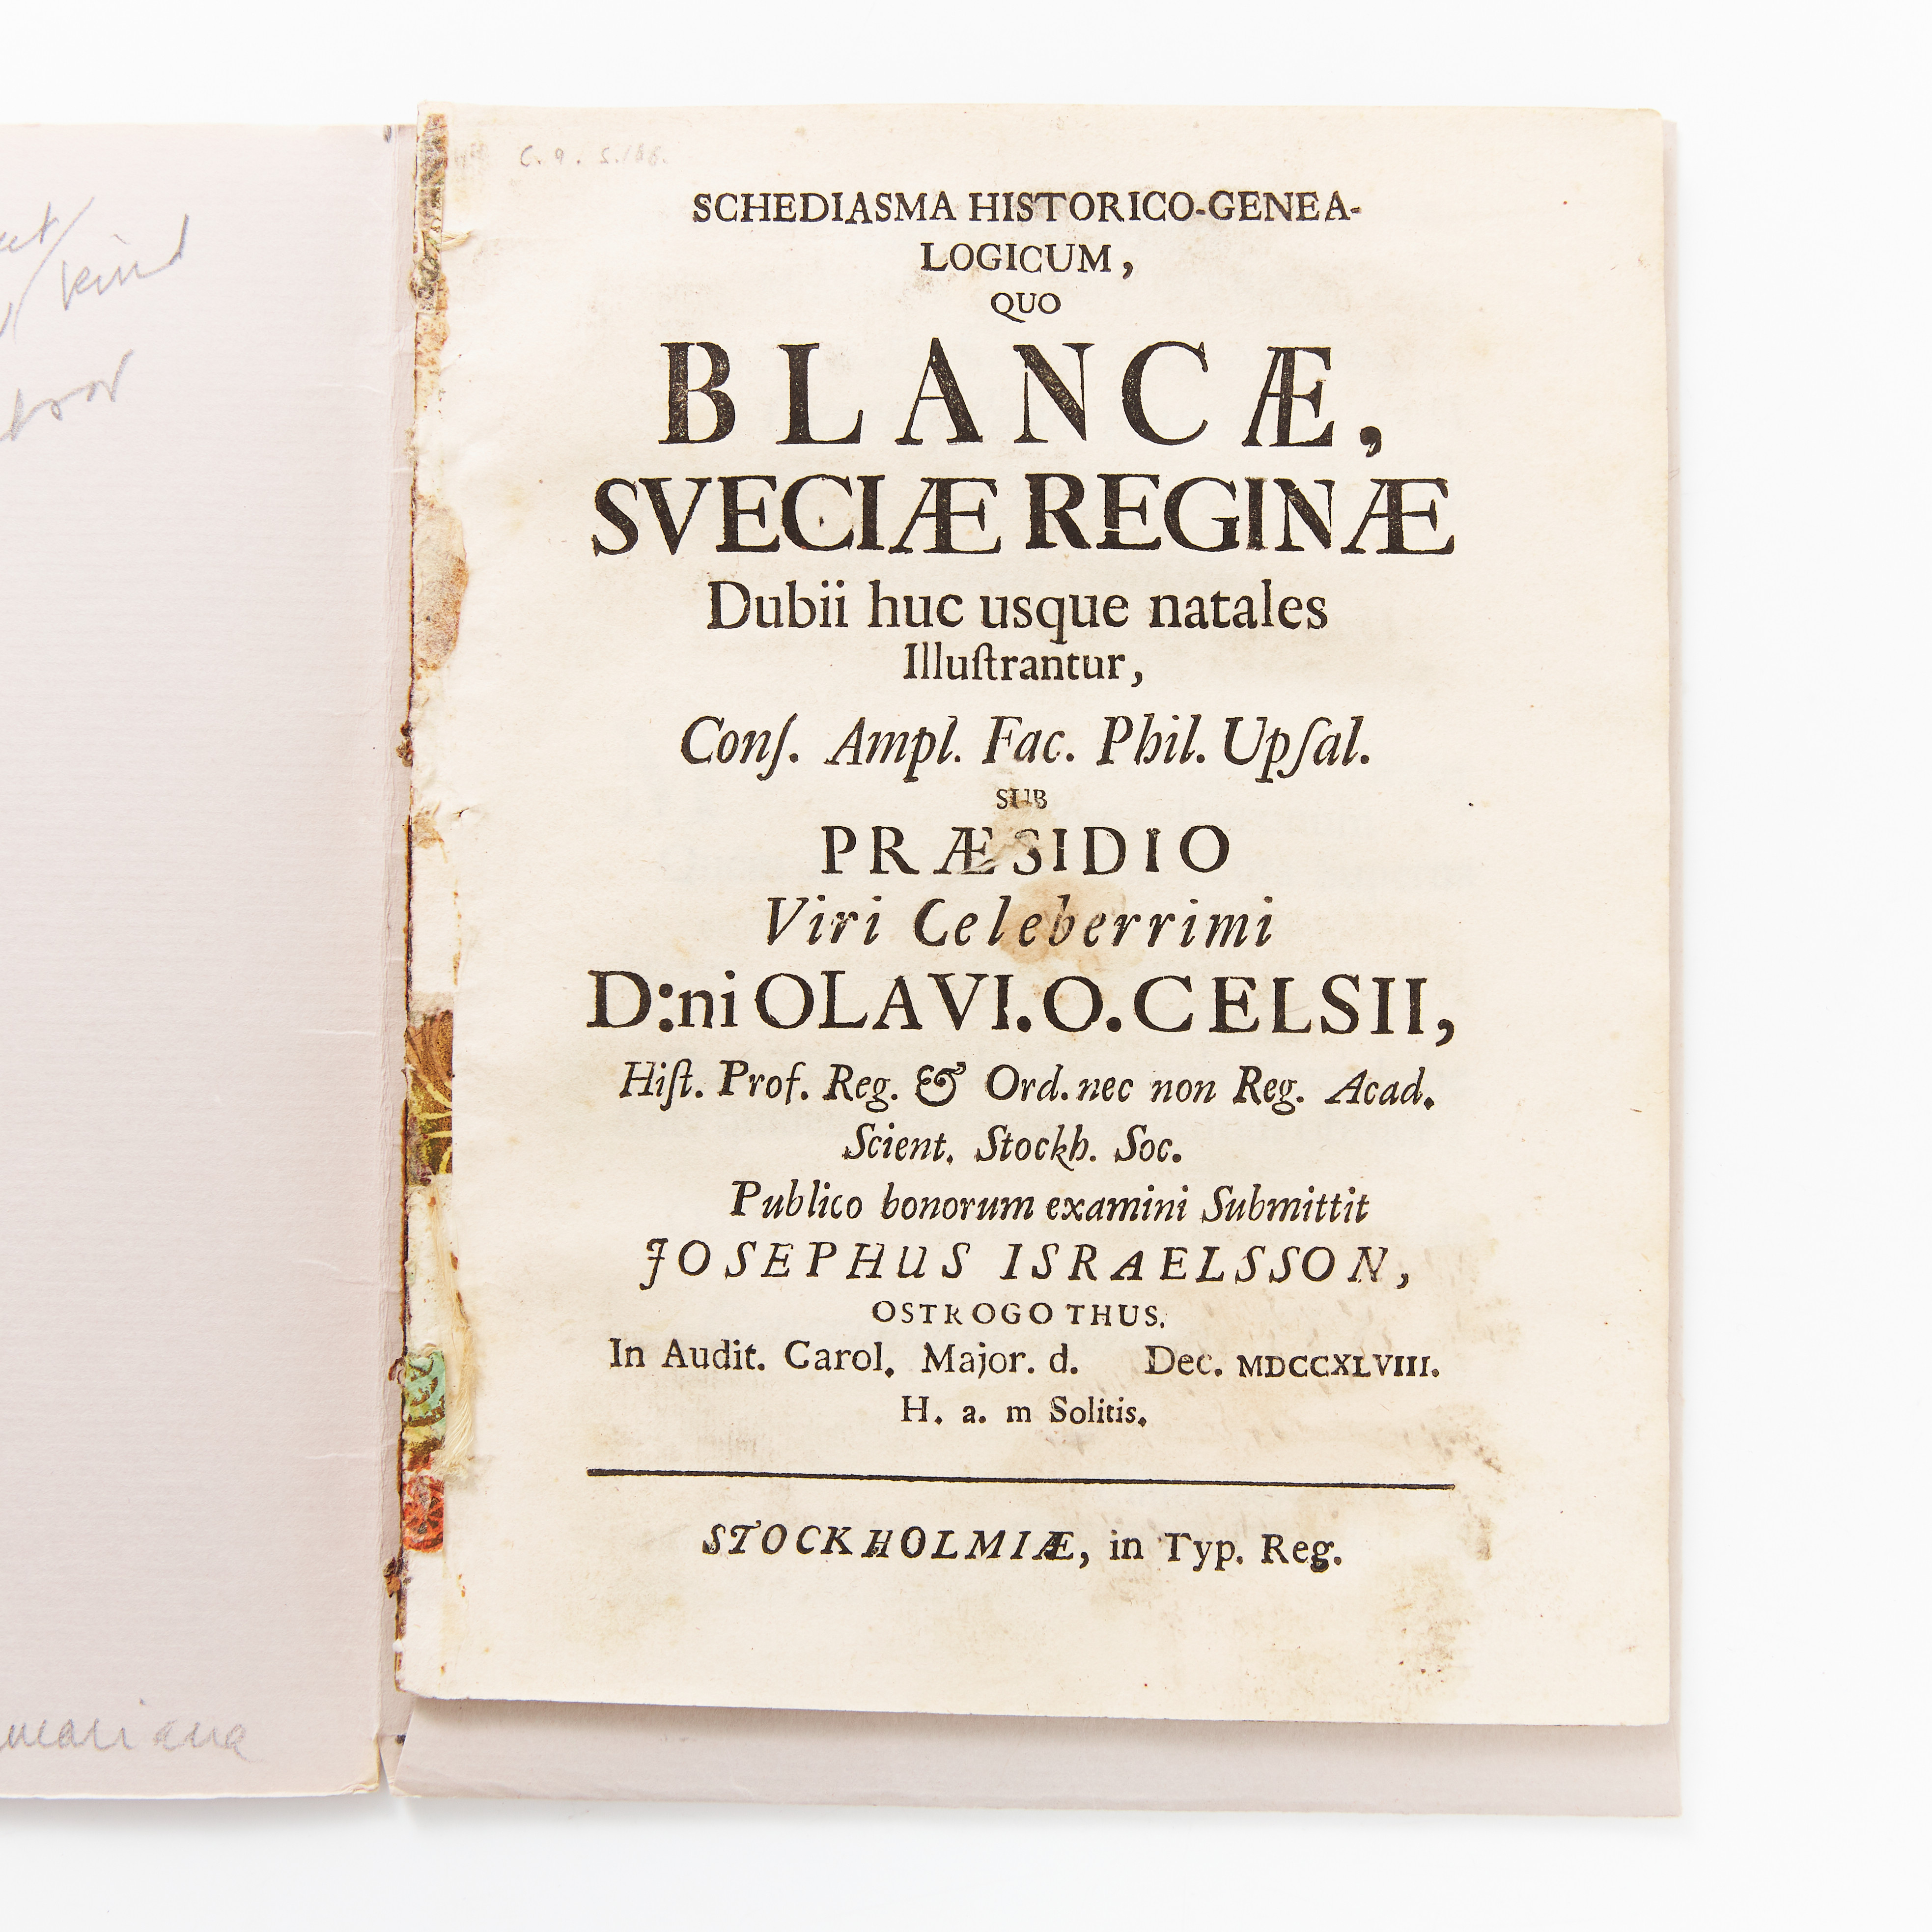 kind
C. 9. S. 188.
SCHEDIASMA HISTORICO-GENEA-
LOGICUM,
QUO
BLANCÆ,
SVECIÆ REGINÆ
Dubii huc usque natales
Illuſtrantur,
Conſ. Ampl. Fac. Phil. Upſal.
SUB
PRÆSIDIO
Viri Celeberrimi
D:ni OLAVI. O. CELSII,
Hiſt. Prof. Reg. & Ord. nec non Reg. Acad.
Scient. Stockh. Soc.
Publico bonorum examini Submittit
JOSEPHUS ISRAELSSON,
OSTROGOTHUS.
In Audit. Carol. Major. d. Dec. MDCCXLVIII.
H. a. m Solitis.
STOCKHOLMIÆ, in Typ. Reg.